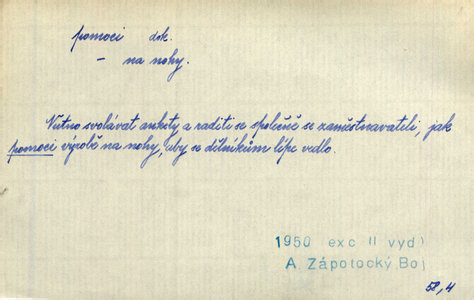 pomoci dok.
– na nohy.
Nutno svolávat ankety a raditi se společně se zaměstnavateli, jak
pomoci výrobě na nohy, aby se dělníkům lépe vedlo.
1950 exc (I vyd)
A. Zápotocký Boj
58,4